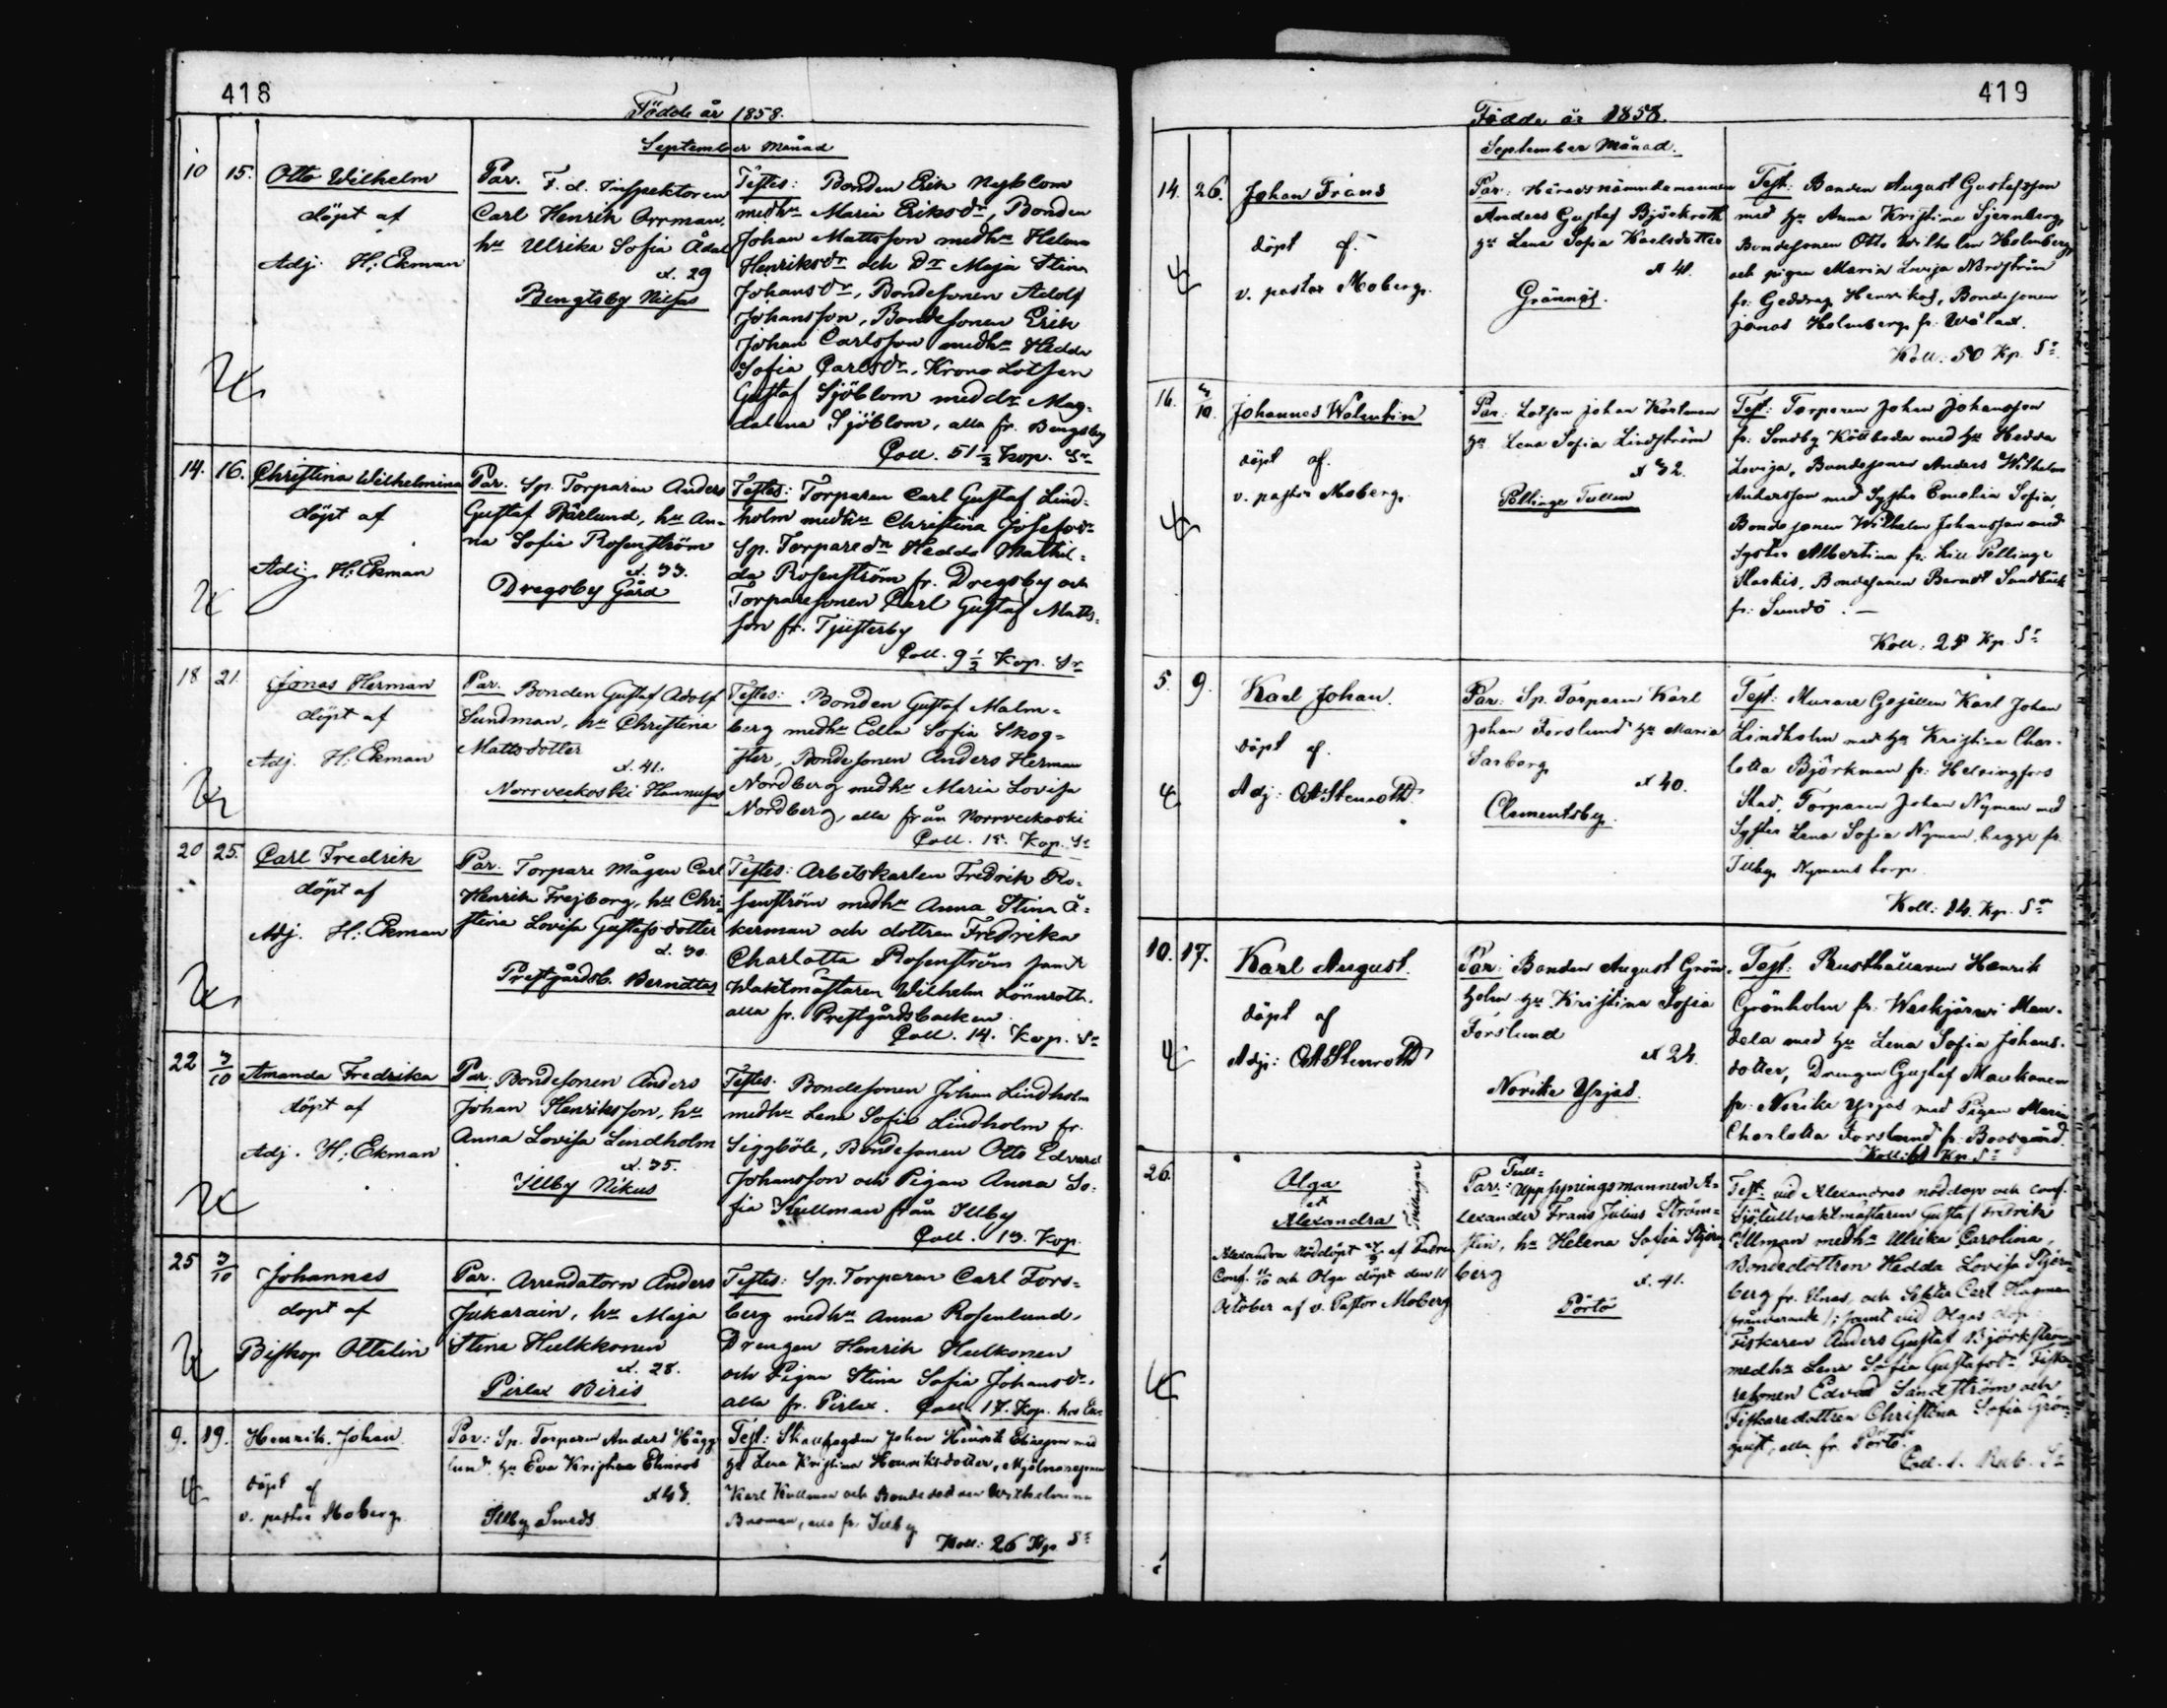 418
Födde år 1858.
September Månad
10 15. Otto Wilhelm
döpt af
Adj. H: Ekman
Par. F. d. Inspektoren
Carl Henrik Orrman,
hu Ulrika Sofia Ådal
æt. 29
Bengtsby Nissas
Testes: Bonden Erik Nyblom
med hu Maria Eriksdr, Bonden
Johan Mattsson med hu Helena
Henriksdr och Dr Maja Stina
Johansdr, Bondesonen Adolf
Johansson, Bondesonen Erik
Johan Carlsson med hu Hedda
Sofia Carlsdr, Krono Lotsen
Gustaf Sjöblom med dr Mag=
dalena Sjöblom, alla fr. Bengsby
Coll. 51 1/2 Kop. Sr
14. 16. Christina Wilhelmina
döpt af
Adj. H: Ekman
Par. Sp. Torparen Anders
Gustaf Bärlund, hu An=
na Sofia Rosenström
æt. 33.
Drägsby Gård
Testes: Torparen Carl Gustaf Lind=
holm med hu Christina Josefsdr
Sp. Torparedr Hedda Mathil=
da Rosenström fr. Dregsby och
Torparesonen Carl Gustaf Matts=
son fr. Tjusterby
Coll. 9 1/2 Kop. Sr
18 21. Jonas Herman
döpt af
Adj. H: Ekman
Par. Bonden Gustaf Adolf
Sundman, hu Christina
Mattsdotter
æt. 41.
Norrveckoski Hannusas
Testes: Bonden Gustaf Malm=
berg med hu Edla Sofia Skog=
ster, Bondesonen Anders Herman
Nordberg med hu Maria Lovisa
Nordberg, alla från Norrveckoski
Coll. 15. Kop. Sr
20 25. Carl Fredrik
döpt af
Adj. H: Ekman
Par. Torpare Mågen Carl
Henrik Frejborg, hu Chri=
stina Lovisa Gustafsdotter
æt. 30.
Prestgårdsb. Berndtas
Testes: Arbetskarlen Fredrik Ro=
senström med hu Anna Stina Å=
kerman och dottren Fredrika
Charlotta Rosenström samt
Waktmästaren Wilhelm Lönnroth.
alla fr. Prestgårdsbacken
Coll. 14. Kop. Sr
22 3/10 Amanda Fredrika
döpt af
Adj. H: Ekman
Par. Bondesonen Anders
Johan Henriksson, hu
Anna Lovisa Lindholm
æt. 35.
Illby Nikus
Testes. Bondesonen Johan Lindholm
med hu Lena Sofia Lindholm fr.
Siggböle, Bondesonen Otto Edvard
Johansson och Pigan Anna So=
fia Kullman från Illby
Coll. 13. Kop.
25 3/10 Johannes
döpt af
Biskop Ottelin
Par. Arrendatorn Anders
Jukarain, hu Maja
Stina Hulkkonen
æt. 28.
Pirlax Biris
Testes: Sp. Torparen Carl Fors=
berg med hu Anna Rosenlund,
Drengen Henrik Hulkonen
och Pigan Stina Sofia Johansdr.
alla fr. Pirlax. Coll. 17. Kop. hos
9. 19. Henrik Johan.
döpt af
v. pastor Moberg.
Par: Sp. Torparen Anders Hägg
lund. hu Eva Kristina
æt 43.
Illby Smeds
Test: Skallfogden Johan Henrik med
hu Lena Kristina Henriksdotter, Mjölnaresonen
Karl Kullman och Bondedottren Wilhelmina
Broman, alla fr. Illby
Koll: 26 Kp. Sr
419
Födde år 1858.
September Månad.
14. 26. Johan Frans
döpt af.
v. pastor Moberg.
Par: Häradsnämndemannen
Anders Gustaf Björkroth
hu Lena Sofia Karlsdotter
æt 41.
Grännäs.
Test: Bonden August Gustafsson
med hu Anna Kristina Stjernberg,
Bondesonen Otto Wilhelm Holmberg
och pigan Maria Lovisa Norrström
fr. Geddrag Henrikas, Bondesonen
Jonas Holmberg fr. Wålax.
Koll: 50 Kp. Sr
16. 3/10. Johannes Walentin
döpt af.
v. pastor Moberg.
Par: Lotsen Johan Kortman
hu Lena Sofia Lindström
æt 32.
Pellinge Tullen
Test: Torparen Johan Johansson
fr. Sondby Köttboda med hu Hedda
Lovisa, Bondesonen Anders Wilhelm
Andersson med Syster Emelia Sofia,
Bondesonen Wilhelm Johansson med
syster Albertina fr. Lill Pellinge
Bondesonen Berndt Sandbäck
fr. Sundö. —
Koll: 25 Kp. Sr
5. 9. Karl Johan.
döpt af.
Adj: O A Stenroth
Par: Sp. Torparen Karl
Johan Forslund hu Maria
Sarberg
æt 40.
Clementsby.
Test: Murare Gesällen Karl Johan
Lindholm med hu Kristina Char=
lotta Björkman fr. Helsingfors
Stad, Torparen Johan Nyman med
Syster Lena Sofia Nyman, begge fr.
Illby Nymans torp.
Koll: 14. Kp. Sr
10. 17. Karl August.
döpt af
Adj: O A Stenroth
Par: Bonden August Grön=
holm hu Kristina Sofia
Forslund
æt 24.
Norike Yrjas.
Test: Rusthållaren Henrik
Grönholm fr. Weckjärvi
med hu Lena Sofia Johans=
dotter, Drengen Gustaf Maukonen
fr. Norike Yrjas med Pigan Maria
Charlotta Forslund fr. Boosgård.
Koll: Kp. Sr
26. Olga
et
Alexandra
Tvillingar
Alexandra Nöddöpt 27/9 af Fadren
Conf. 11/10 och Olga döpt den 11
October af v. Pastor Moberg
Par: Tull=
Uppsyningsmannen A=
lexander Frans Julius Ström=
sten, hu Helena Sofia Stjern
berg
æt. 41.
Pörtö
Test: vid Alexandras nöddop och conf.
Sjötullvaktmästaren Gustaf Fredrik
Ullman med hu Ulrika Carolina,
Bondedottren Hedda Lovisa Stjern=
berg fr. Ulnas, och Carl Hagman
/:frånvarande:/ samt vid Olgas dop:
Fiskaren Anders Gustaf Björkström
med hu Lena Sofia Gustafsdr Fiska=
resonen Edvard Sandström och
Fiskaredottren Christina Sofia Grön=
qvist, alla fr. Pörtö.
Coll. 1. Rub. Sr